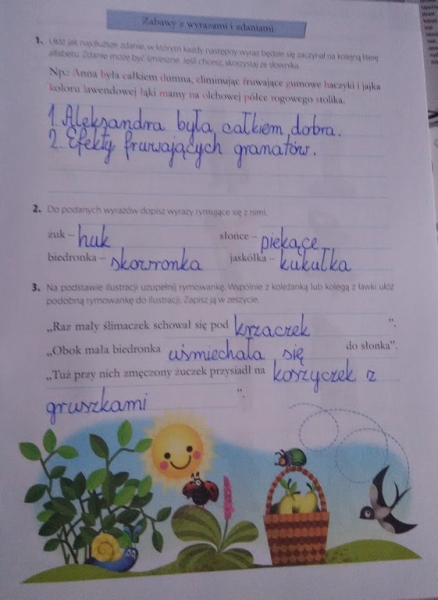 Zabawy z wyrazami i zdaniami
1. Ułóż jak najdłuższe zdanie, w którym każdy następny wyraz będzie się zaczynał na kolejną literę
alfabetu. Zdanie może być śmieszne. Jeśli chcesz, skorzystaj ze słownika.
Np.: Anna była całkiem dumna, eliminując fruwające gumowe haczyki i jajka
koloru lawendowej łąki mamy na olchowej półce rogowego stolika.
1. Aleksandra była całkiem dobra.
2. Efekty fruwających granatów.
2. Do podanych wyrazów dopisz wyrazy rymujące się z nimi.
żuk – huk słońce – piekące
biedronka – skowronka jaskółka – kukułka
3. Na podstawie ilustracji uzupełnij rymowankę. Wspólnie z koleżanką lub kolegą z ławki ułóż
podobną rymowankę do ilustracji. Zapisz ją w zeszycie.
„Raz mały ślimaczek schował się pod krzaczek ”.
„Obok mała biedronka uśmiechała się do słonka”.
„Tuż przy nich zmęczony żuczek przysiadł na koszyczek z
gruszkami ”.